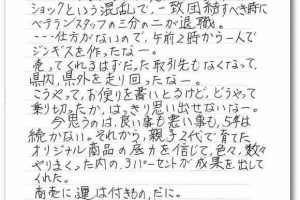 ショックという混乱で、一致団結すべき時に
ベテランスタッフの三分の二が退職。
---仕方がないので、午前2時から一人で
ジンギスを作ったなー。
売ってくれるはずだった取引先もなくなって、
県内、県外を走り回ったなー。
こうやって、お便りを書いとるけど、どうやって
乗り切ったか、はっきり思い出せないなー。
今思うのは、良い事も悪い事も、5年は
続かない。それから、親子2代で育てた
オリジナル商品の底力を信じて、色々、数々
やりまくった内の、3パーセントが成果を出して
くれた。
商売に運は付きもの、だに。